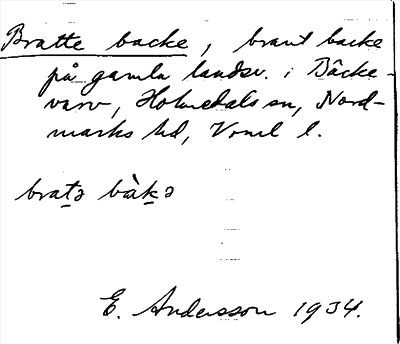 Bratte backe, brant backe
på gamla landsv. i Bäcke-
varv, Holmedals sn, Nord-
marks hd, Vrml l.
brat̲ə bàk̲ə
E. Andersson 1934.